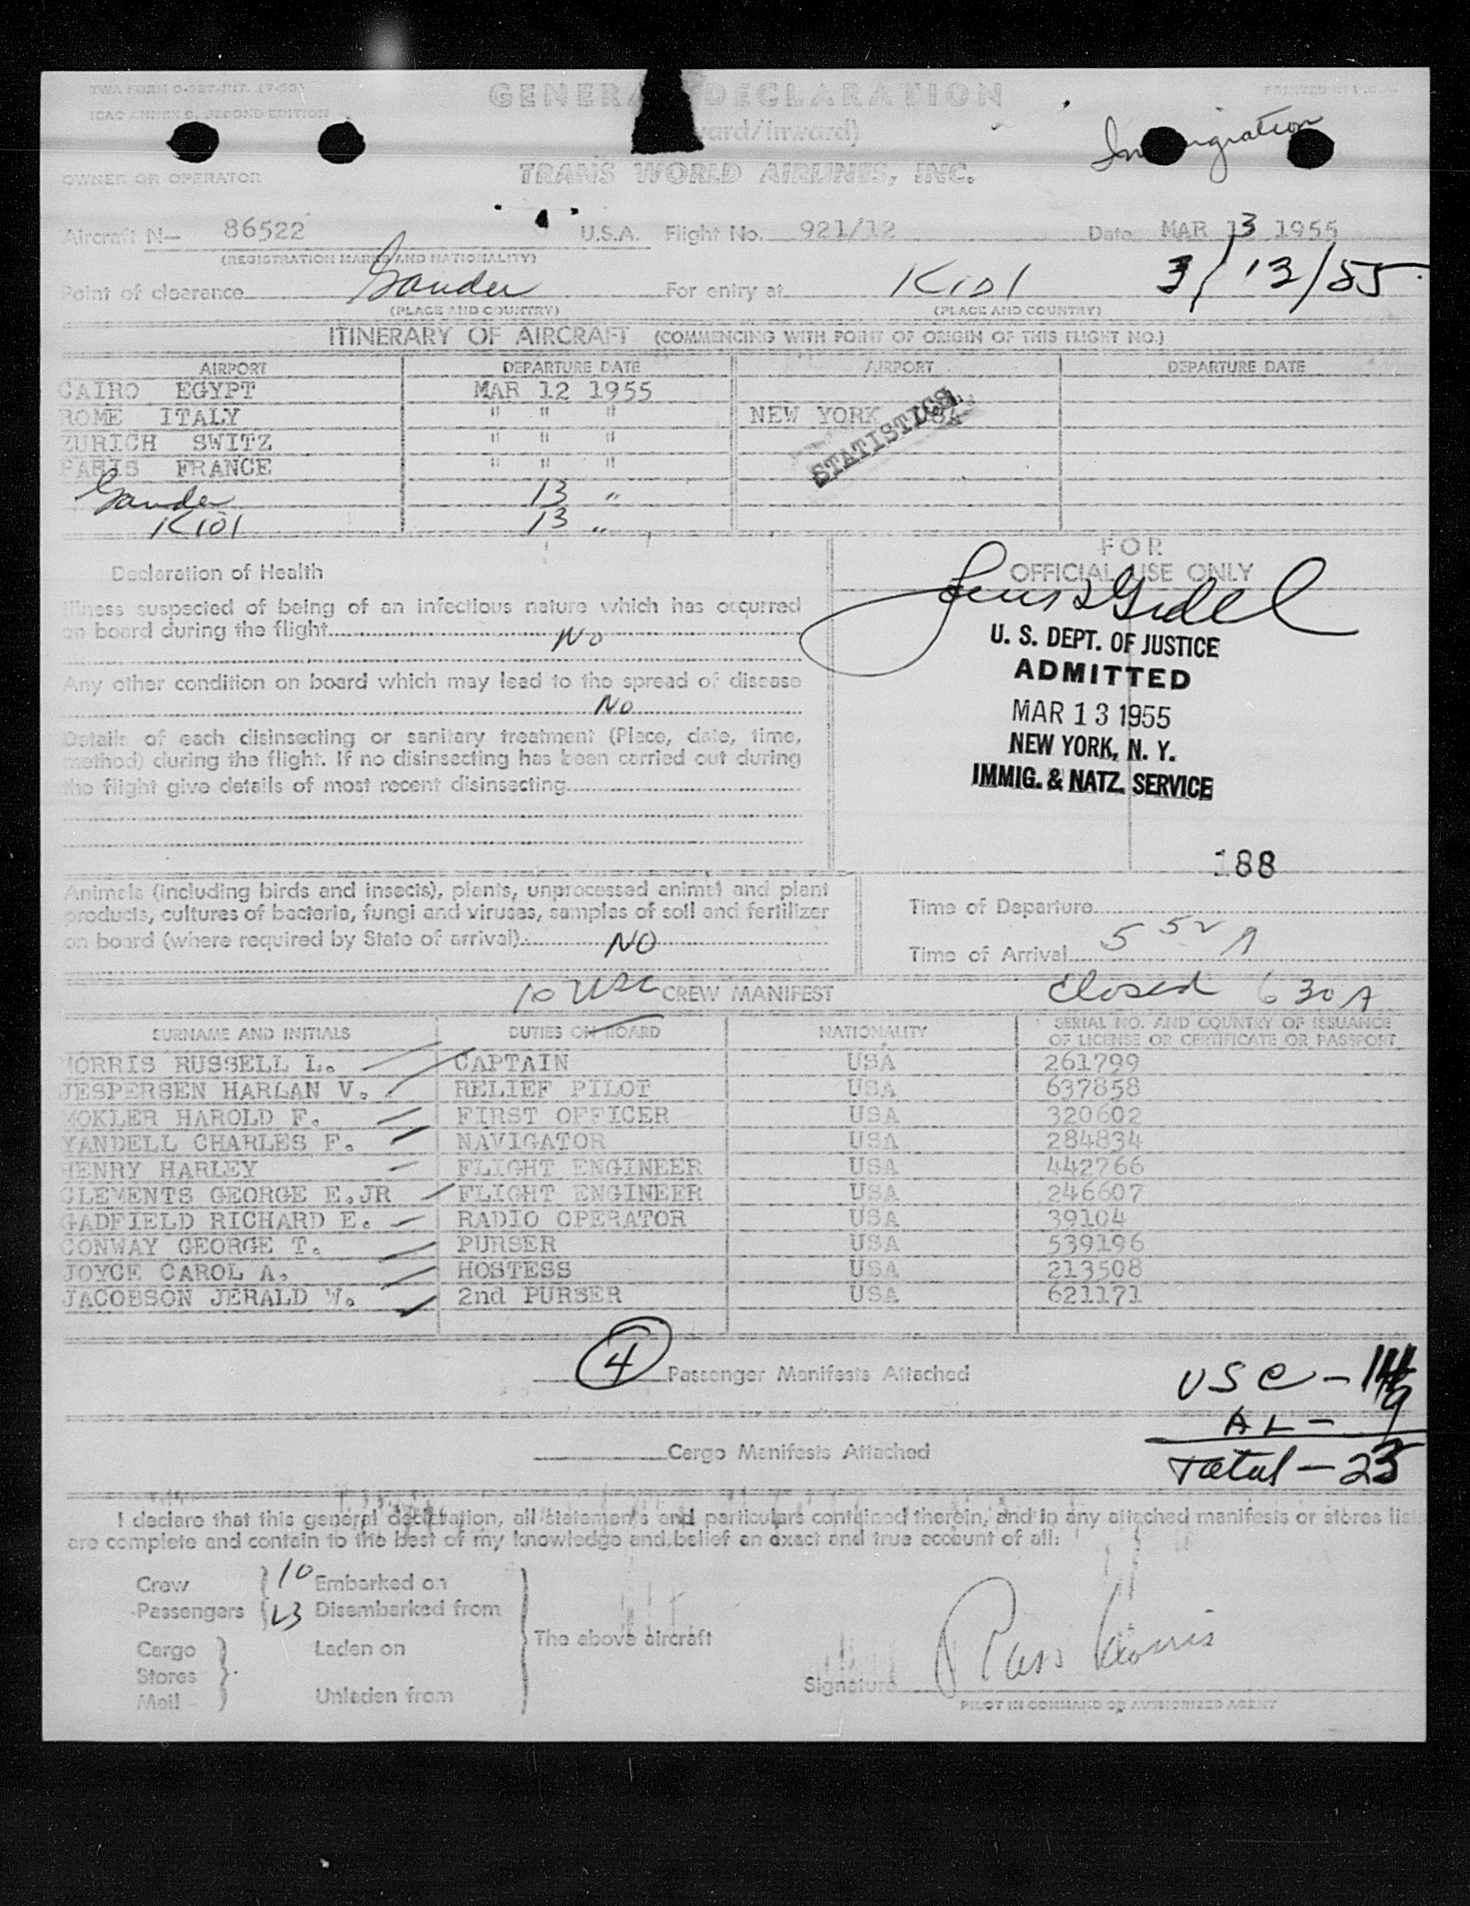 GENERAL DECLARATION
ICAO ANNEX 9, SECOND EDITION
Immigration
OWNER OR OPERATOR
TRANS WORLD AIRLINES, INC.
Aircraft N— 86522 U.S.A. Flight No. 921/12 Date MAR 13 1955
(REGISTRATION MARKS AND NATIONALITY)
Point of clearance Gander For entry at Kidl 3/13/55
(PLACE AND COUNTRY) (PLACE AND COUNTRY)
ITINERARY OF AIRCRAFT (COMMENCING WITH POINT OF ORIGIN OF THIS FLIGHT NO.)
AIRPORT DEPARTURE DATE AIRPORT DEPARTURE DATE
CAIRO EGYPT MAR 12 1955
ROME ITALY " " " NEW YORK USA
ZURICH SWITZ " " "
PARIS FRANCE " " "
STATISTICS
Gander 13 "
Kidl 13 "
FOR
OFFICIAL USE ONLY
Declaration of Health
Illness suspected of being of an infectious nature which has occurred
on board during the flight No
Any other condition on board which may lead to the spread of disease
No
Details of each disinsecting or sanitary treatment (Place, date, time,
method) during the flight. If no disinsecting has been carried out during
the flight give details of most recent disinsecting
U. S. DEPT. OF JUSTICE
ADMITTED
MAR 13 1955
NEW YORK, N. Y.
IMMIG. & NATZ. SERVICE
188
Animals (including birds and insects), plants, unprocessed animal and plant
products, cultures of bacteria, fungi and viruses, samples of soil and fertilizer
on board (where required by State of arrival) NO
Time of Departure
Time of Arrival 5 52 A
10 USC CREW MANIFEST Closed 6 30 A
SURNAME AND INITIALS DUTIES ON BOARD NATIONALITY SERIAL NO. AND COUNTRY OF ISSUANCE
OF LICENSE OR CERTIFICATE OR PASSPORT
MORRIS RUSSELL L. CAPTAIN USA 261799
JESPERSEN HARLAN V. RELIEF PILOT USA 637858
MOKLER HAROLD F. FIRST OFFICER USA 320602
YANDELL CHARLES F. NAVIGATOR USA 284834
HENRY HARLEY FLIGHT ENGINEER USA 442766
CLEMENTS GEORGE E.JR FLIGHT ENGINEER USA 246607
GADFIELD RICHARD E. RADIO OPERATOR USA 39104
CONWAY GEORGE T. PURSER USA 539196
JOYCE CAROL A. HOSTESS USA 213508
JACOBSON JERALD W. 2nd PURSER USA 621171
4 Passenger Manifests Attached
USC - 14
AL - 9
Cargo Manifests Attached
Total - 23
I declare that this general declaration, all statements and particulars contained therein, and in any attached manifests or stores lis
are complete and contain to the best of my knowledge and belief an exact and true account of all:
Crew 10 Embarked on
Passengers 23 Disembarked from
The above aircraft
Cargo Laden on
Stores
Mail Unladen from
Signature Russ Morris
PILOT IN COMMAND OR AUTHORIZED AGENT